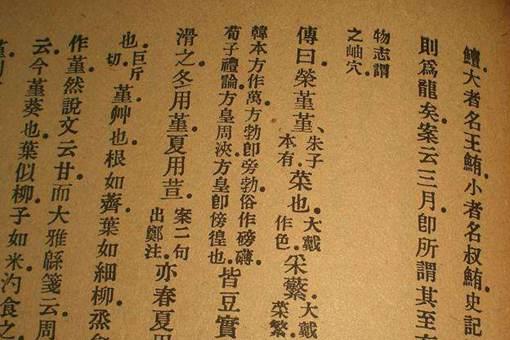 鱣大者名王鮪小者名叔鮪史記
則爲龍矣案云三月卽所謂其至
物志謂
之岫穴
傳曰榮菫菫、朱子本有菜也大戴作色采蘩大戴
韓本方作萬方勃卽旁勃俗作磅礴
荀子禮論方皇周浹方皇卽傍徨也皆豆實
滑之冬用菫夏用荁案二句出鄭注亦春夏
也巨斤切菫艸也根如薺葉如細柳烝
作菫然說文云甘而大雅緜箋云周
云今菫葵也葉似柳子如米汋食之